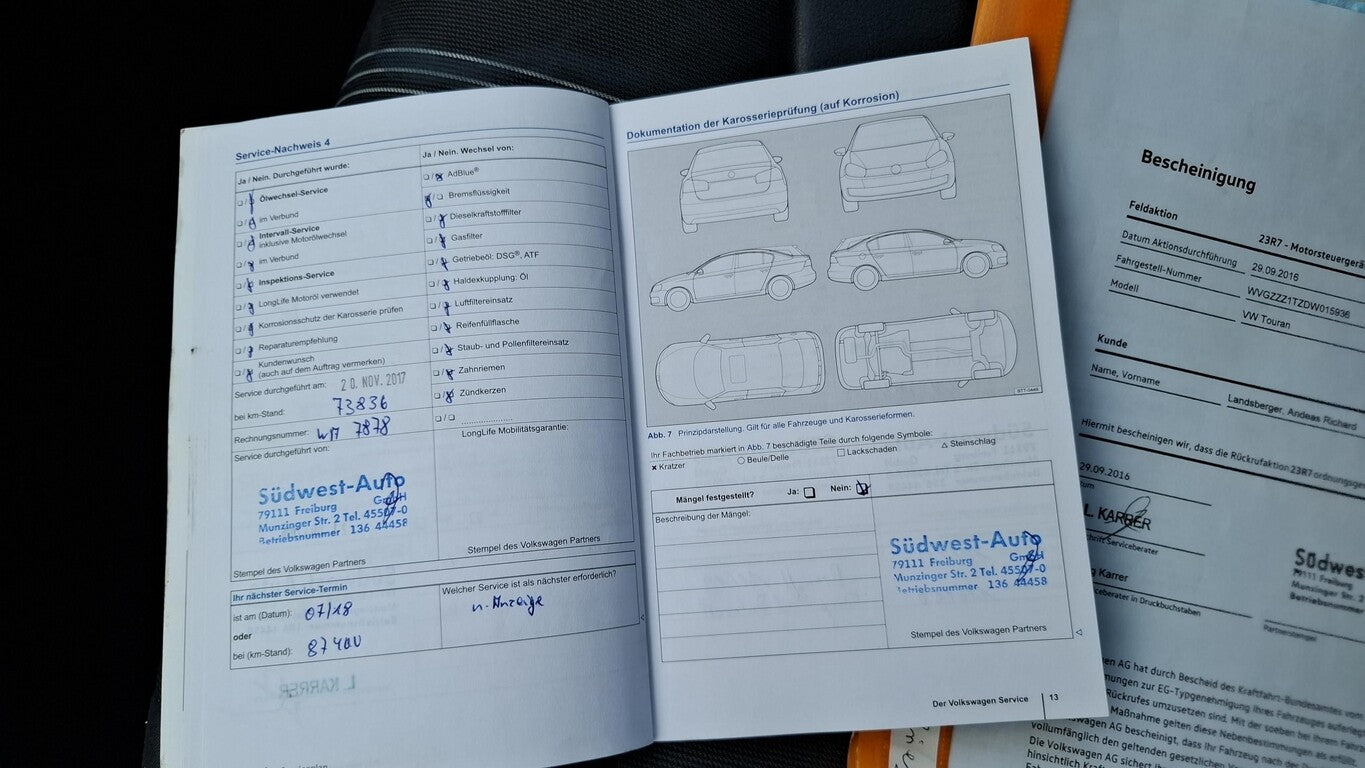 Service-Nachweis 4
Ja / Nein. Durchgeführt wurde:
Ölwechsel-Service
im Verbund
Intervall-Service
inklusive Motorölwechsel
im Verbund
Inspektions-Service
LongLife Motoröl verwendet
Korrosionsschutz der Karosserie prüfen
Reparaturempfehlung
Kundenwunsch
(auch auf dem Auftrag vermerken)
Service durchgeführt am: 20. NOV. 2017
bei km-Stand: 73836
Rechnungsnummer: 7878
Service durchgeführt von:
Südwest-Auto
GmbH
79111 Freiburg
Munzinger Str. 2 Tel. 45507-0
Betriebsnummer 136 44458
Stempel des Volkswagen Partners
Ja / Nein. Wechsel von:
AdBlue®
Bremsflüssigkeit
Dieselkraftstofffilter
Gasfilter
Getriebeöl: DSG®, ATF
Haldexkupplung: Öl
Luftfiltereinsatz
Reifenfüllflasche
Staub- und Pollenfiltereinsatz
Zahnriemen
Zündkerzen
LongLife Mobilitätsgarantie:
Stempel des Volkswagen Partners
Ihr nächster Service-Termin
ist am (Datum): 07/18
oder
bei (km-Stand): 87400
Welcher Service ist als nächster erforderlich?
n. Anzeige
L. KARRER
Dokumentation der Karosserieprüfung (auf Korrosion)
Abb. 7 Prinzipdarstellung. Gilt für alle Fahrzeuge und Karosserieformen.
Ihr Fachbetrieb markiert in Abb. 7 beschädigte Teile durch folgende Symbole:
× Kratzer ○ Beule/Delle □ Lackschaden △ Steinschlag
Mängel festgestellt? Ja: Nein:
Beschreibung der Mängel:
Südwest-Auto
GmbH
79111 Freiburg
Munzinger Str. 2 Tel. 45507-0
Betriebsnummer 136 44458
Stempel des Volkswagen Partners
Der Volkswagen Service 13
Bescheinigung
Feldaktion
23R7 - Motorsteuergerä
Datum Aktionsdurchführung 29.09.2016
Fahrgestell-Nummer WVGZZZ1TZDW015936
Modell VW Touran
Kunde
Name, Vorname Landsberger, Andeas Richard
Hiermit bescheinigen wir, dass die Rückrufaktion 23R7 ordnungsge
29.09.2016
L. KARRER
Serviceberater
Karrer
Serviceberater in Druckbuchstaben
Südwes
79111 Freiburg
Munzinger Str. 2
Betriebsnumme
Partnerstempel
en AG hat durch Bescheid des Kraftfahrt-Bundesamtes vom
mungen zur EG-Typgenehmigung Ihres Fahrzeuges auferleg
Rückrufes umzusetzen sind. Mit der soeben bei Ihrem Fahr
Maßnahme gelten diese Nebenbestimmungen als erfüllt.
wagen AG bescheinigt, dass Ihr Fahrzeug nach der
vollumfänglich den geltenden gesetzlichen
Die Volkswagen AG sichert Ih
hinsichtlich